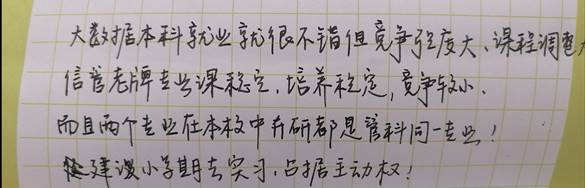 大数据本科就业就很不错但竞争强度大、课程调整大
信管老牌专业课稳定,培养稳定,竞争较小.
而且两个专业在本校中考研都是管科同一专业!
建议小学期去实习,占据主动权!